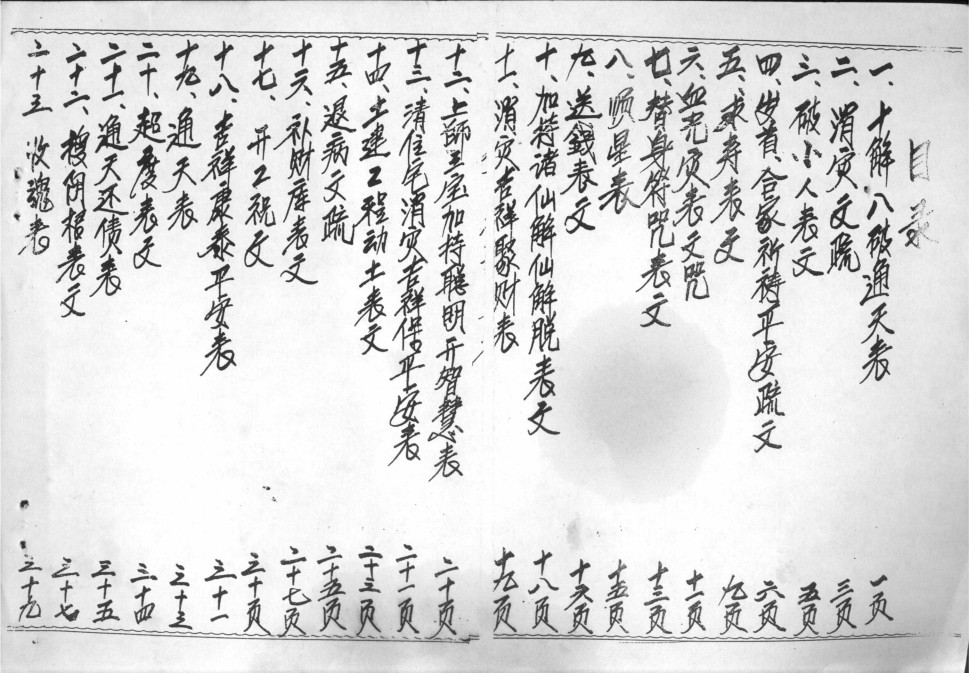 目录
一、十解、八破通天表 一页
二、消灾文疏 三页
三、破小人表文 五页
四、岁首、合家祈祷平安疏文 六页
五、求寿表文 九页
六、血光灾表文咒 十一页
七、替身符咒表文 十三页
八、顺星表 十五页
九、送錢表文 十六页
十、加持诸仙解仙解脱表文 十八页
十一、消灾吉祥聚财表 十九页
十二、上師三宝加持聪明开智慧表 二十页
十三、清住宅消灾吉祥保平安表 二十一页
十四、土建工程动土表文 二十三页
十五、退病文疏 二十五页
十六、补财库表文 二十七页
十七、开工祝文 三十页
十八、吉祥康泰平安表 三十一
十九、通天表 三十三
二十、超度表文 三十四
二十一、通天还债表 三十五
二十二、搜阴梏表文 三十七
二十三 收魂表 三十九